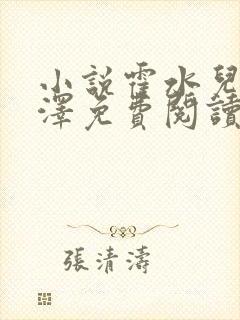 小說霍水兒
澤免費閱讀
張清濤